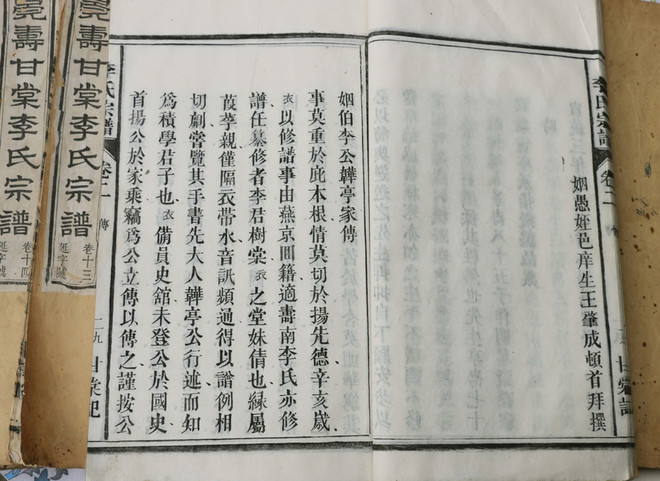 宣統三年
姻愚姪邑庠生王肇成頓首拜撰
李氏宗譜
卷二
甘棠記
姻伯李公韡亭家傳
事莫重於庇本根情莫切於揚先德辛亥歲
衣以修譜事由燕京囬籍適壽南李氏亦修
譜任纂修者李君樹棠衣之堂妹倩也緣屬
葭莩親僅隔衣帶水音訊頻通得以譜例相
切劘嘗覽其手書先大人韡亭公行述而知
為積學君子也衣備員史舘未登公於國史
首揚公於家乘竊為公立傳以傳之謹按公
李氏宗譜
卷二
傳
二九
甘棠記
堯壽甘棠李氏宗譜
卷十三
延字號
堯壽甘棠李氏宗譜
卷十四
延字號